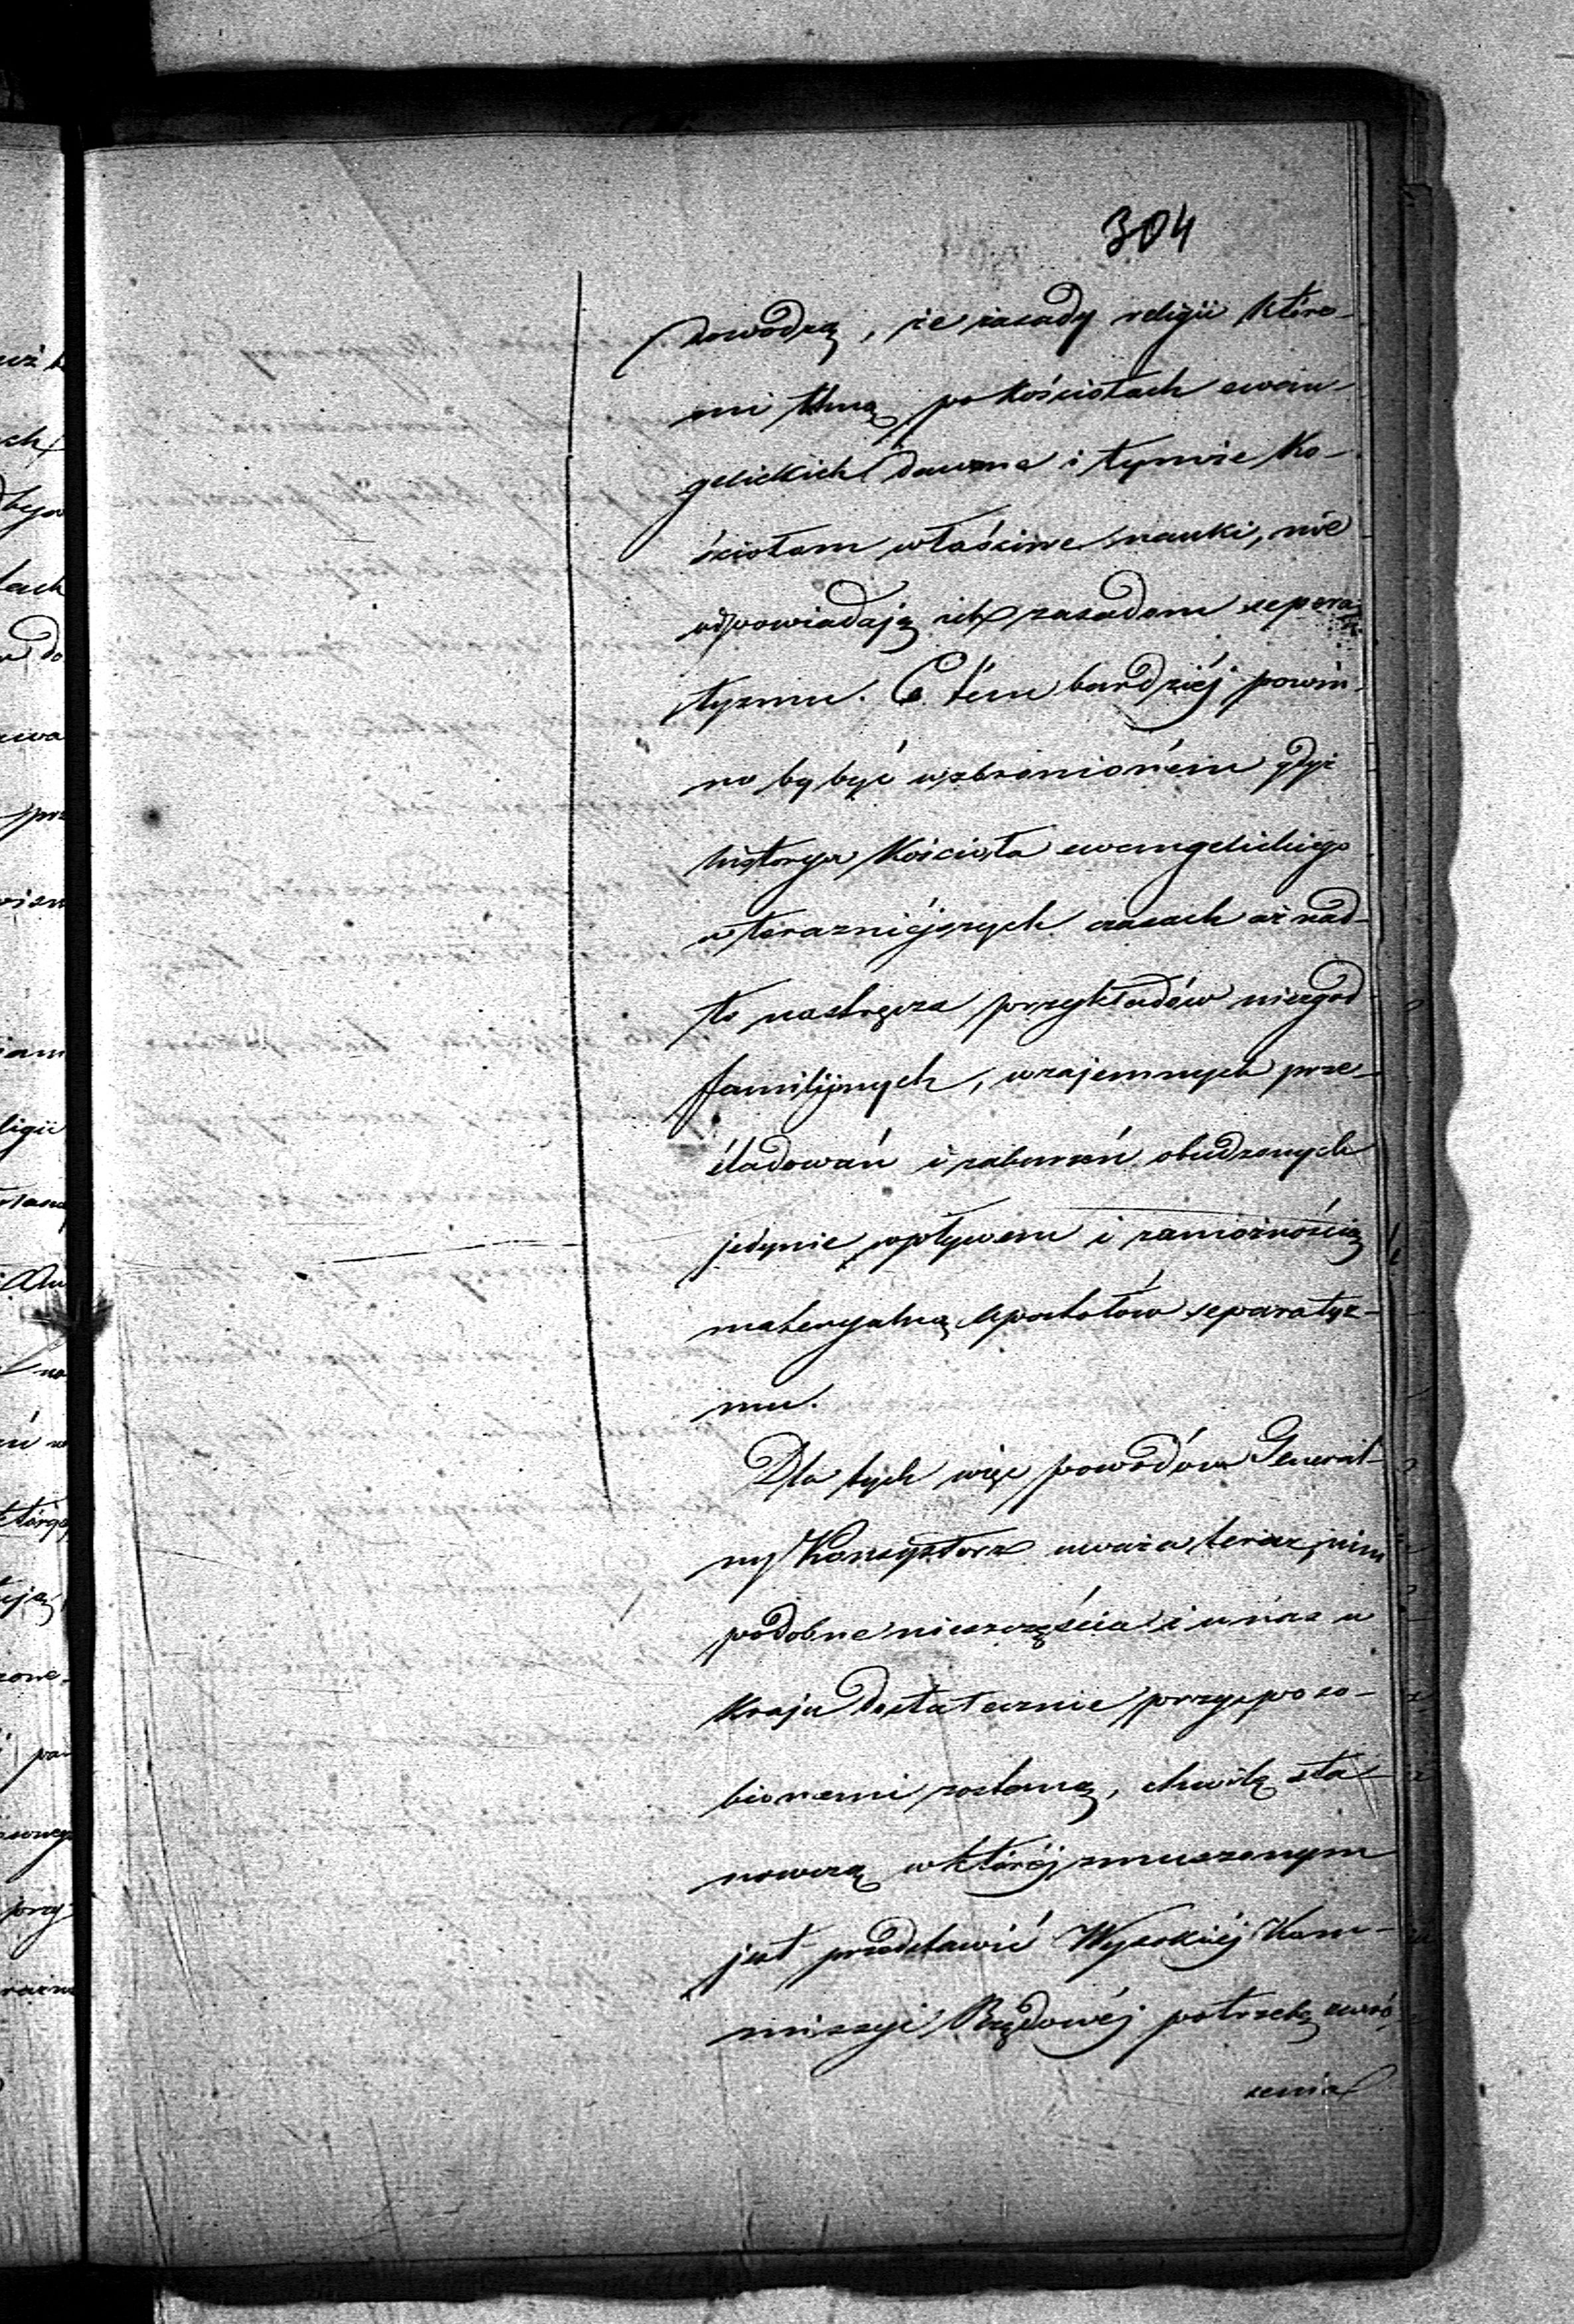 304
dowodzą, że zasady religii które-
mi tłumią po kościołach ewan-
gelickich dawne i tymże ko-
ściołom właściwe nauki, nie
odpowiadają ich zasadom separa-
tyzmu. Co tém bardziéj powin-
no by być wzbronioném gdyż
historya Kościoła ewangelickiego
w teraznieјszych czasach aż nad-
to nastręcza przykładów niezgod
familijnych, wzajemnych prze-
śladowań i zaburzeń obudzonych
jedynie wpływem i zamożnością
materyalną Apostołów separatyz-
mu.
Dla tych więc powodów General-
ny Konsystorz uważa teraz, nim
podobne nieszczęścia i u nas w
kraju dostatecznie przysposo-
bionemi zostaną, chwilę sta-
nowczą w któréj zmuszonym
jest przedstawić Wysokiéj Kom-
missyi Rządowéj potrzebę zwró-
cenia